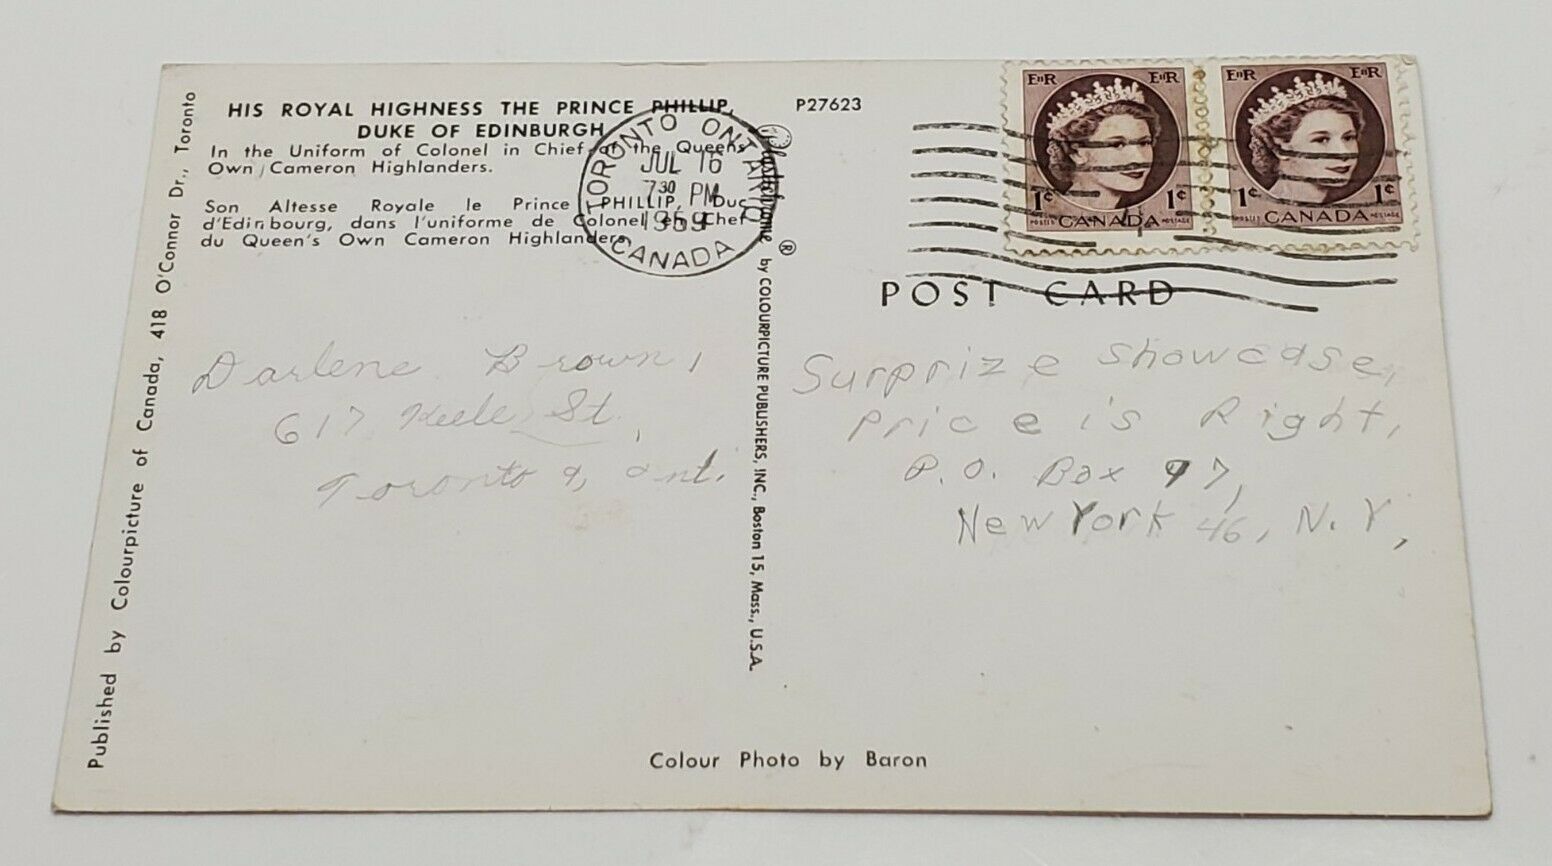 HIS ROYAL HIGHNESS THE PRINCE PHILLIP,
DUKE OF EDINBURGH
In the Uniform of Colonel in Chief of the Queens
Own Cameron Highlanders.
Son Altesse Royale le Prince PHILLIP, Duc
d'Edinbourg, dans l'uniforme de Colonel en Chef
du Queen's Own Cameron Highlanders.
P27623
TORONTO ONTARIO
JUL 16
7 30 PM
1959
CANADA
EIIR EIIR
1¢ 1¢
POSTES CANADA POSTAGE
EIIR EIIR
1¢ 1¢
POSTES CANADA POSTAGE
POST CARD
Darlene Brown,
617 Keele St.,
Toronto 9, Ont.
Surprize showcase,
Price is Right,
P.O. Box 97,
New York 46, N.Y,
Plastichrome ® by COLOURPICTURE PUBLISHERS, INC., Boston 15, Mass., U.S.A.
Published by Colourpicture of Canada, 418 O'Connor Dr., Toronto
Colour Photo by Baron